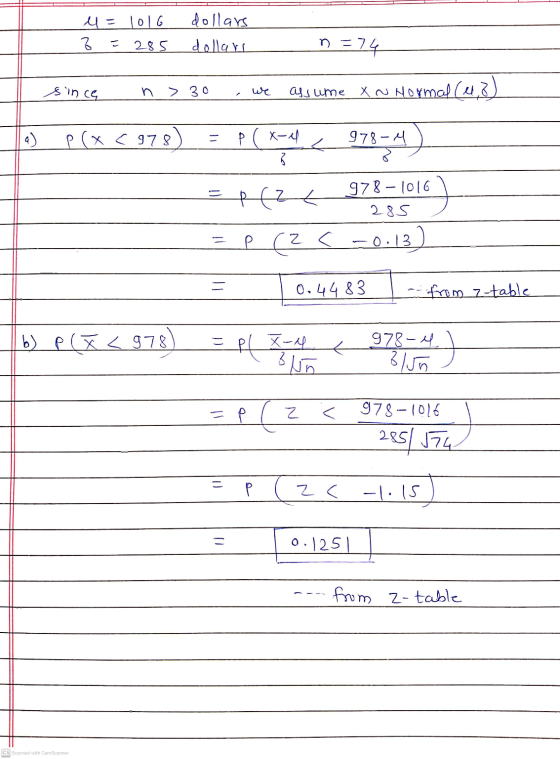 μ = 1016 dollars
σ = 285 dollars n = 74
since n > 30 , we assume X ~ Normal (μ, σ)
a) P(X < 978) = P( (X-μ)/σ < (978-μ)/σ )
= P ( Z < (978-1016)/285 )
= P ( Z < -0.13 )
= 0.4483 --- from z-table
b) P( x̄ < 978 ) = P( (x̄-μ)/(σ/√n) < (978-μ)/(σ/√n) )
= P ( Z < (978-1016)/(285/√74) )
= P ( Z < -1.15 )
= 0.1251
---- from z-table
CS Scanned with CamScanner